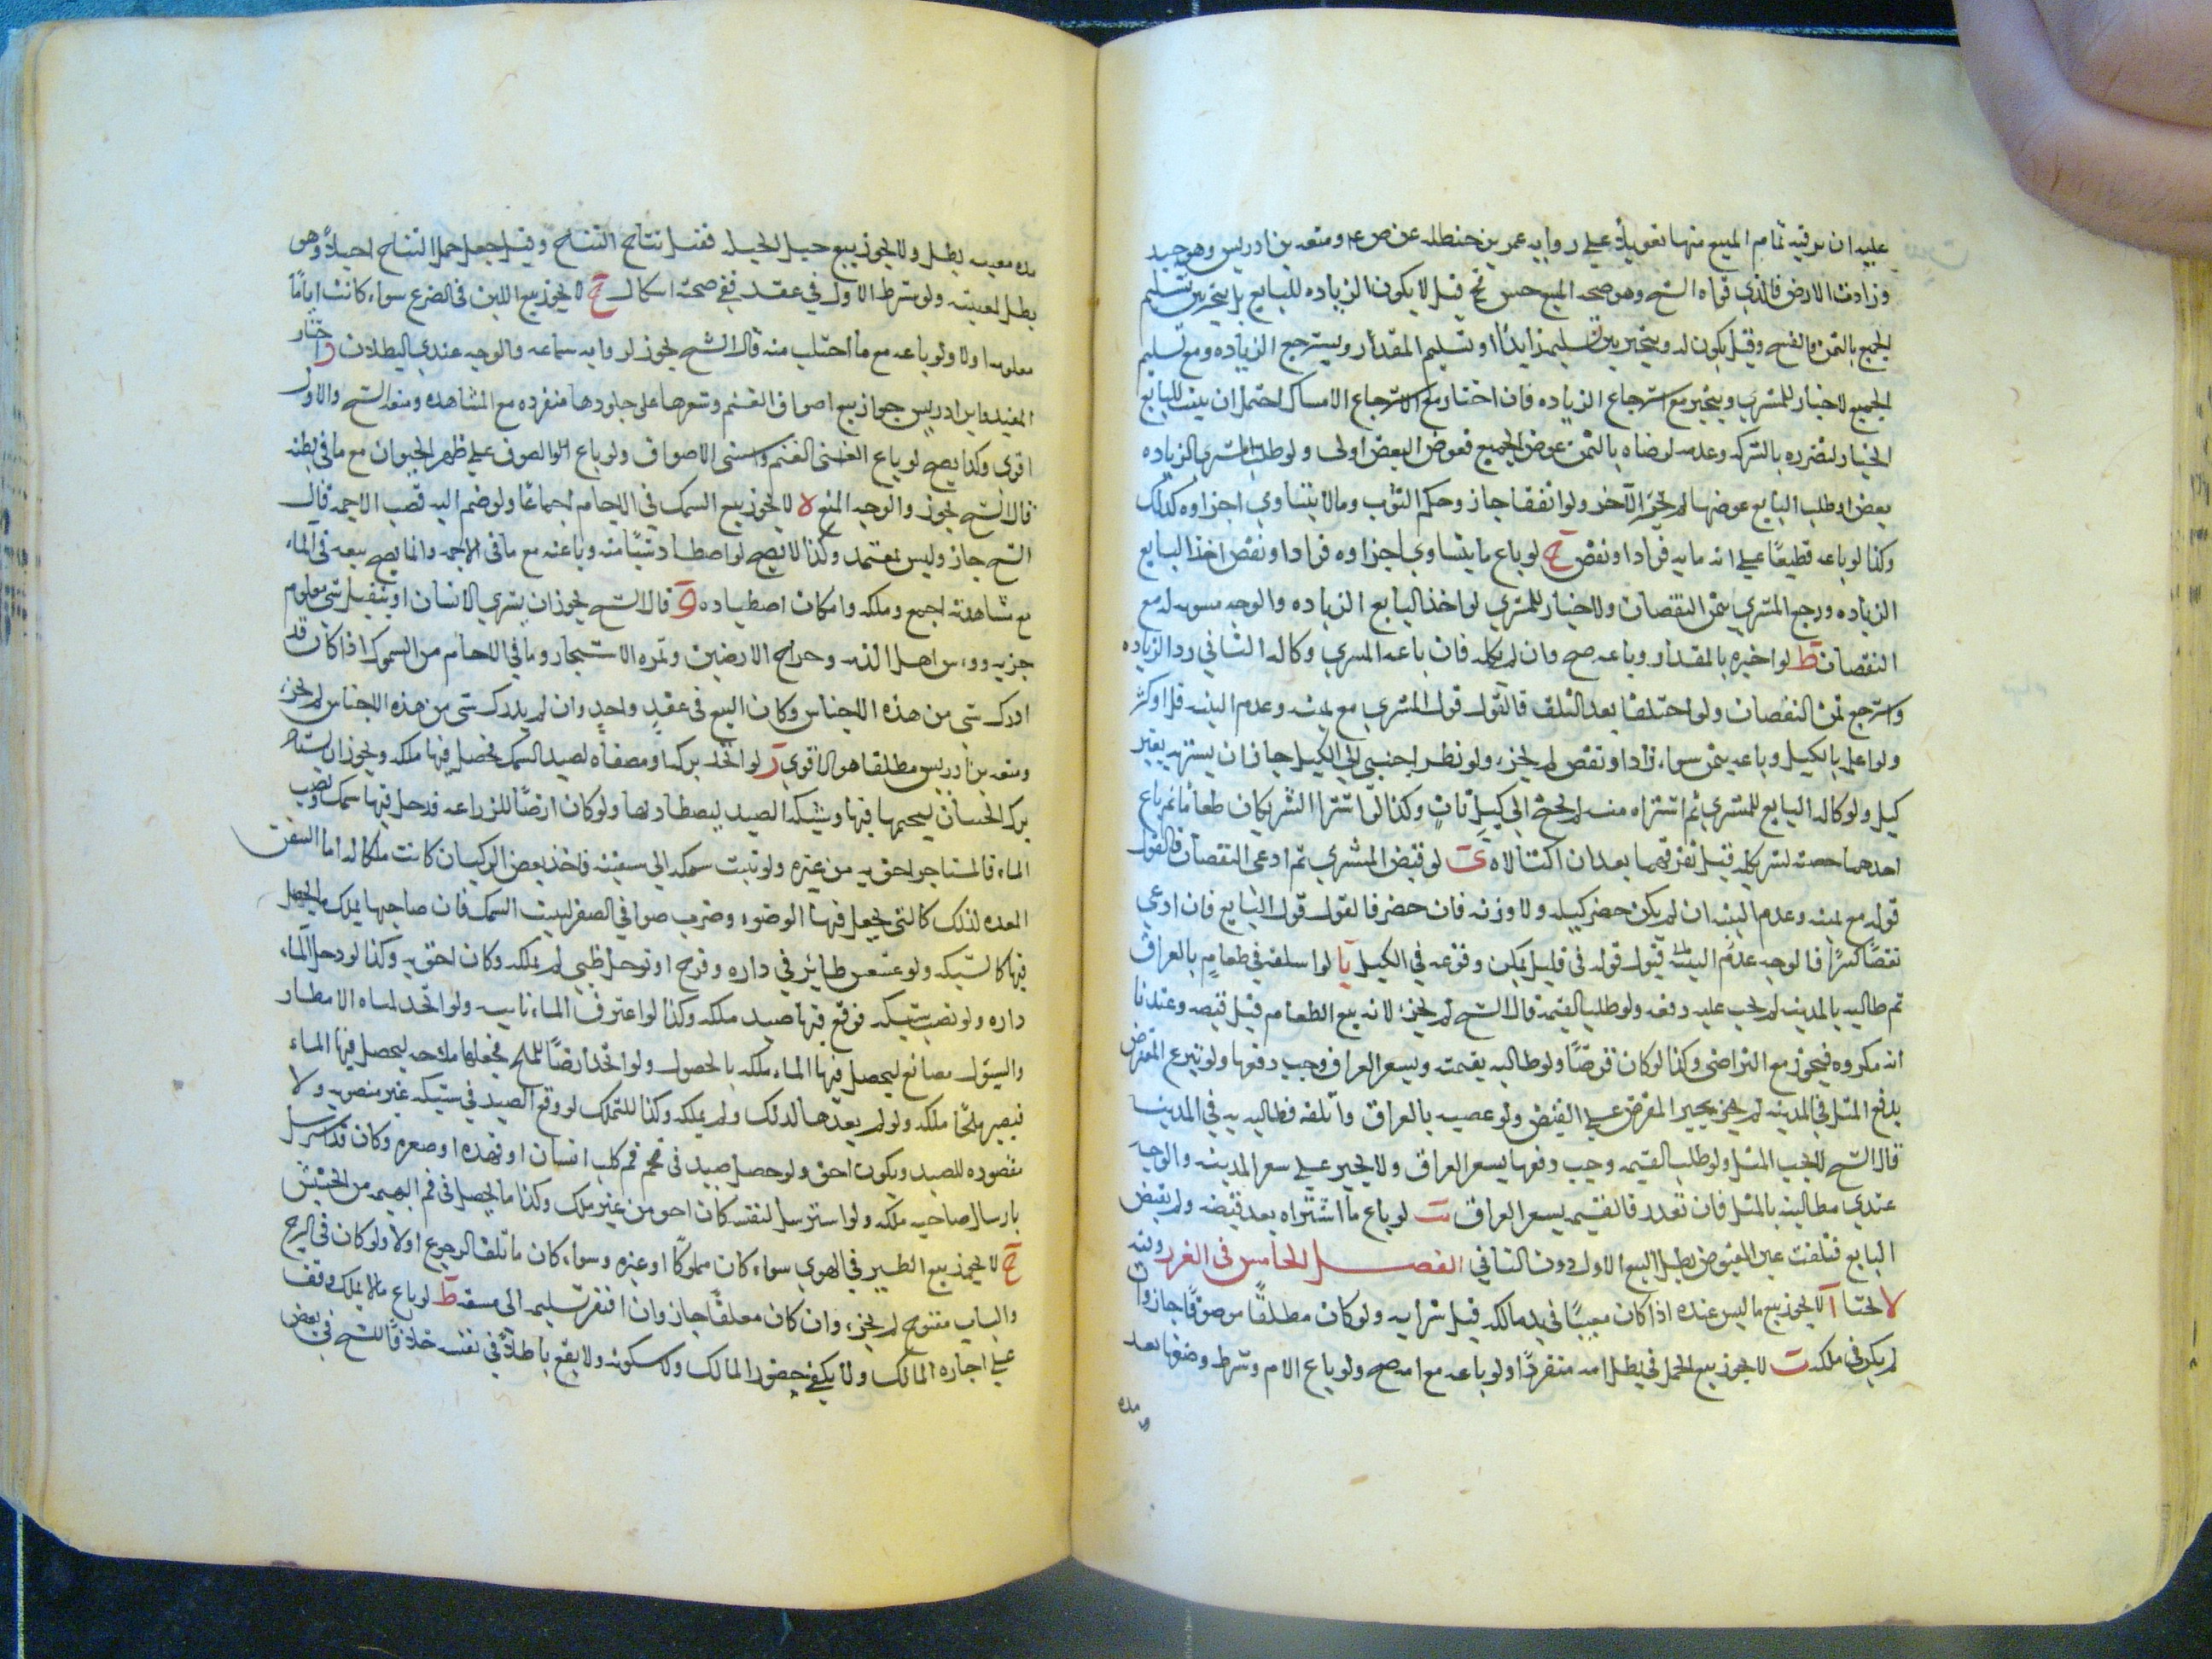 عليه ان يوفيه تمام المبيع منها تعويلاً على روايه عمر بن حنطله عن ص ع ومنعه بن ادريس وهو جيد
وزادت الارض فالذي قواه الشيخ وهو صحه البيع حسن ثم قيل لا يكون الزياده للبايع بل يتخير بين تسليم
الجميع بالثمن والفسخ وقيل يكون له ويتخير بين تسليمه زايدا او تسليم المقدار ويسترجع الزياده ومع تسليم
الجميع لا خيار للمشتري ويتخير مع استرجاع الزياده فان اختار مع الاسترجاع الامساك احتمل ان يثبت للبايع
الخيار لتضرره بالشركه وعدمه لرضاه بالثمن عوض الجميع فعوض البعض اولى ولو طلب المشتري الزياده
بعوض او طلب البايع عوضها لم يجبر الآخر ولو اتفقا جاز وحكم الثوب وما لا يتساوي اجزاوه كذلك
وكذا لو باعه قطيعًا على انه مايه فزاد او نقض ح لو باع ما يتساوي اجزاوه فزاد او نقض اخذ البايع
الزياده ورجع المشتري بثمن النقصان ولا خيار للمشتري لو اخذ البايع الزياده والوجه ثبوته له مع
النقصان ط لو اخبره بالمقدار وباعه صح وان لم يكله فان باعه المشري وكاله الثاني رد الزياده
واسترجع ثمن النقصان ولو اختلفا بعد التلف فالقول قول المشتري مع يمينه وعدم البينه قل او كثر
ولو اعلم بالكيل وباعه بثمن سواء زاد او نقص لم يجز ولو نظر اجنبي الى الكيل جاز ان يشتريه بغير
كيل ولو كاله البايع للمشتري ثم اشتراه منه لم يحتج الى كيل ثانٍ وكذا لو اشترا الشريكان طعاما ثم باع
احدهما حصته لشريكه قبل تفرقهما بعد ان اكتالاه ى لو قبض المشتري ثم ادعى النقصان فالقول
قوله مع يمينه وعدم البينه ان لم يكن حضر كيله ولا وزنه فان حضر فالقول قول البايع فان ادعى
نقصًا كسرًا فالوجه عدم البينه قبول قوله في قليل يمكن وقوعه في الكيل يا لو اسلفه في طعام بالعراق
ثم طالبه بالمدينه لم يجب عليه دفعه ولو طلب القيمه قال الشيخ لم يجز لانه بيع الطعام قبل قبضه وعندنا
انه مكروه فيجوز مع التراضى وكذا لو كان قرضًا ولو طالبه بقيمته وبسعر العراق وجب دفعها ولو تبرع المقترض
بدفع المثل في المدينه لم يجز يجبر المقرض على القبض ولو غصبه بالعراق واتلفه فطالبه به في المدينه
قال الشيخ لا يجب المثل ولو طلب القيمه وجب دفعها بسعر العراق ولا يجبر على سعر المدينه والوجه
عندي مطالبته بالمثل فان تعذر فالقيمه بسعر العراق يب لو باع ما اشتراه بعد قبضه ولم يقبض
البايع فتلفت عين المقبوض بطل البيع الاول دون الثاني الفصل الخامس في الغرر وفيه
لا بحثا ا لا يجوز بيع ما ليس عنده اذا كان معينًا في يد مالكه قبل شرايه ولو كان مطلقًا موصوفًا جاز وان
لم يكن في ملكه ب لا يجوز بيع الحمل في بطن امه منفردًا ولو باعه مع امه صح ولو باع الام وشرط وضعها بعد
مده
مده معينه بطل ولا يجوز بيع حبل الحبله فقيل نتاج النتاج وقيل جعل حمل النتاج اجلاً وهو
بطل لمعينه ولو شرط الاول في عقد ففي صحته اشكال ج لا يجوز بيع اللبن في الضرع سواء كانت اياما
معلومه اولا ولو باعه مع ما احتلب منه قال الشيخ يجوز لروايه سماعه والوجه عندي البطلان د اختار
المفيد وابن ادريس جواز بيع اصواف الغنم وشعرها على جلودها منفرده مع المشاهده ومنعه الشيخ والاول
اقوى وكذا يصح لو باع الغنم واستثنى الاصواف ولو باع الصوف على ظهر الحيوان مع ما في بطنه
قال الشيخ يجوز والوجه المنع ه لا يجوز بيع السمك في الاجام اجماعًا ولو ضم اليه قصب الاجمه قال
الشيخ جاز وليس بمعتمد وكذا لا يصح لو اصطاد شيئًا منه وباعه مع ما في الاجمه وانما يصح بيعه في الماء
مع مشاهدته اجمع وملكه وامكان اصطياده و قال الشيخ يجوز ان يشتري الانسان او يتقبل بشي معلوم
جزيه روس اهل الذمه وخراج الارضين وثمره الاشجار وما في الاجام من السموك اذا كان قد
ادرك شي من هذه الاجناس وكان البيع في عقدٍ واحدٍ وان لم يدرك شي من هذه الاجناس لم يجز
ومنعه بن ادريس مطلقا هو الاقوى ز لو اتخذ بركه او مصفاه لصيد السمك فحصل فيها ملكه ويجوز ان يستاجر
برك الحيتان ليجمها فيها وشبكه الصيد ليصطاد بها ولو كان ارضًا للزراعه فدخل فيها سمك ونضب
الماء فالمستاجر احق به من غيره ولو وثبت سمكه الى سفينه فاخذ بعض الركبان كانت ملكا له اما السفن
المعده لذلك كالتي يجعل فيها الوضو وضرب صوا في الصفر ليثبت السمك فان صاحبها يملك ما يحصل
فيها كالشبكه ولو عشعش طاير في داره وفرخ او توحل ظبي لم يملكه وكان احق به وكذا لو دخل الماء
داره ولو نصب شبكه فوقع فيها صيد ملكه وكذا لو اغترف الماء ثانيه ولو اتخذ لمياه الامطار
والسيول مصانع ليحصل فيها الماء ملكه بالحصول ولو اتخذ ارضًا للملح فجعلها ملاحه ليحصل فيها الماء
فيصير ملحًا ملكه ولو لم يعدها لذلك ولم يملكه وكذا للتملك لو وقع الصيد في شبكه غير منصوبه ولا
مقصوده للصيد ويكون احق ولو حصل صيد في فم كلب انسان او فهده او صقره وكان قد استرسل
بارسال صاحبه ملكه ولو استرسل لنفسه كان احق من غير ملك وكذا ما يحصل في فم البهيمه من الحشيش
ح لا يجوز بيع الطير في الهوى سواء كان مملوكًا او غيره وسواء كان ما تلف الرجوع اولا ولو كان في البرج
والباب مفتوح لم يجز، وان كان مغلقًا جاز وان افتقر تسليمه الى مشقه ط لو باع ما لا يملك وقف
على اجازه المالك ولا يكفي حضور المالك وسكوته ولا يقع باطلاً في نفسه خلافًا للشيخ في بعض